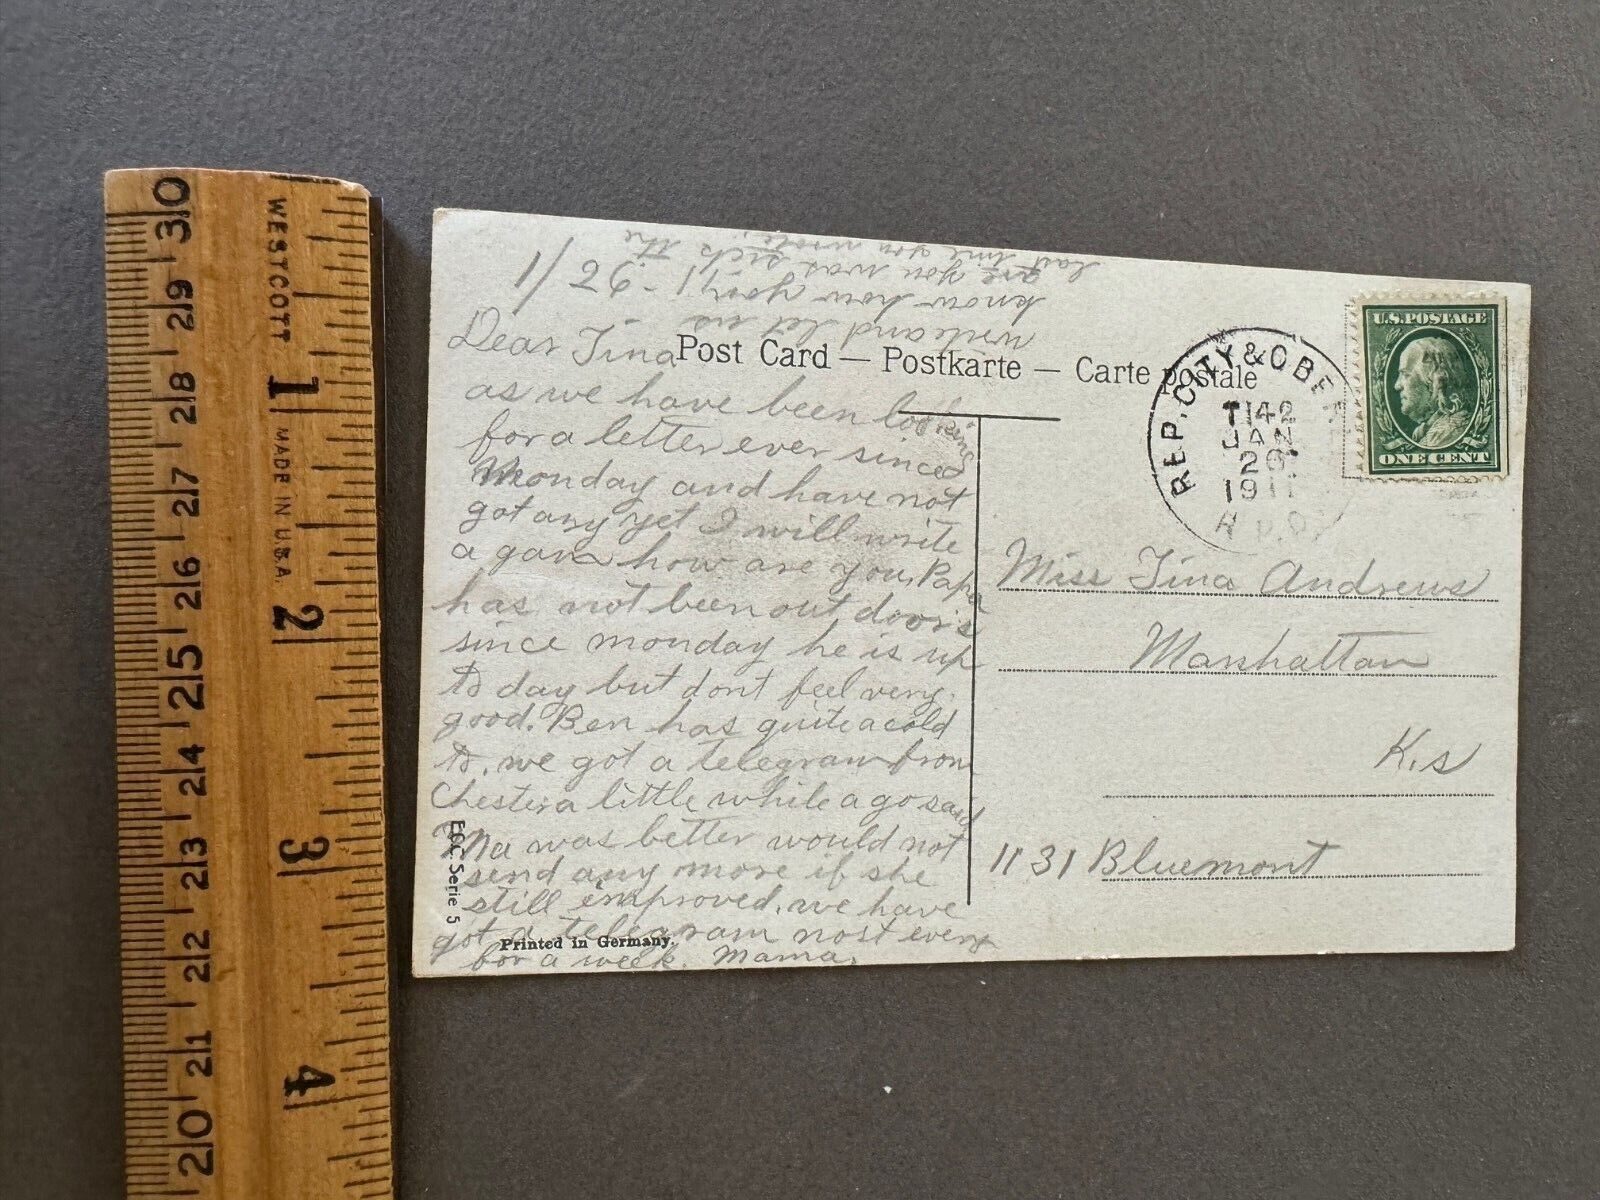 1/26-11
Dear Tina
as we have been looking
for a letter ever since
Monday and have not
got any yet I will write
a gan how are you, Papa
has not been out doors
since monday he is up
to day but dont feel very
good. Ben has quite a cold
to. we got a telegram from
Chester a little while a go said
Ma was better would not
send any more if she
still improved. we have
got a telegram most every
for a week. Mama.
write and let us
know how you
are you was sick the
last time you wrote.
Post Card — Postkarte — Carte postale
EOC Serie 5
Printed in Germany.
REP. CITY & OBE
T142
JAN
26
1911
R.P.O.
U.S. POSTAGE
ONE CENT
Miss Tina Andrews
Manhattan
K.s
1131 Bluemont
WESTCOTT
MADE IN U.S.A.
1
2
3
4
30
29
28
27
26
25
24
23
22
21
20